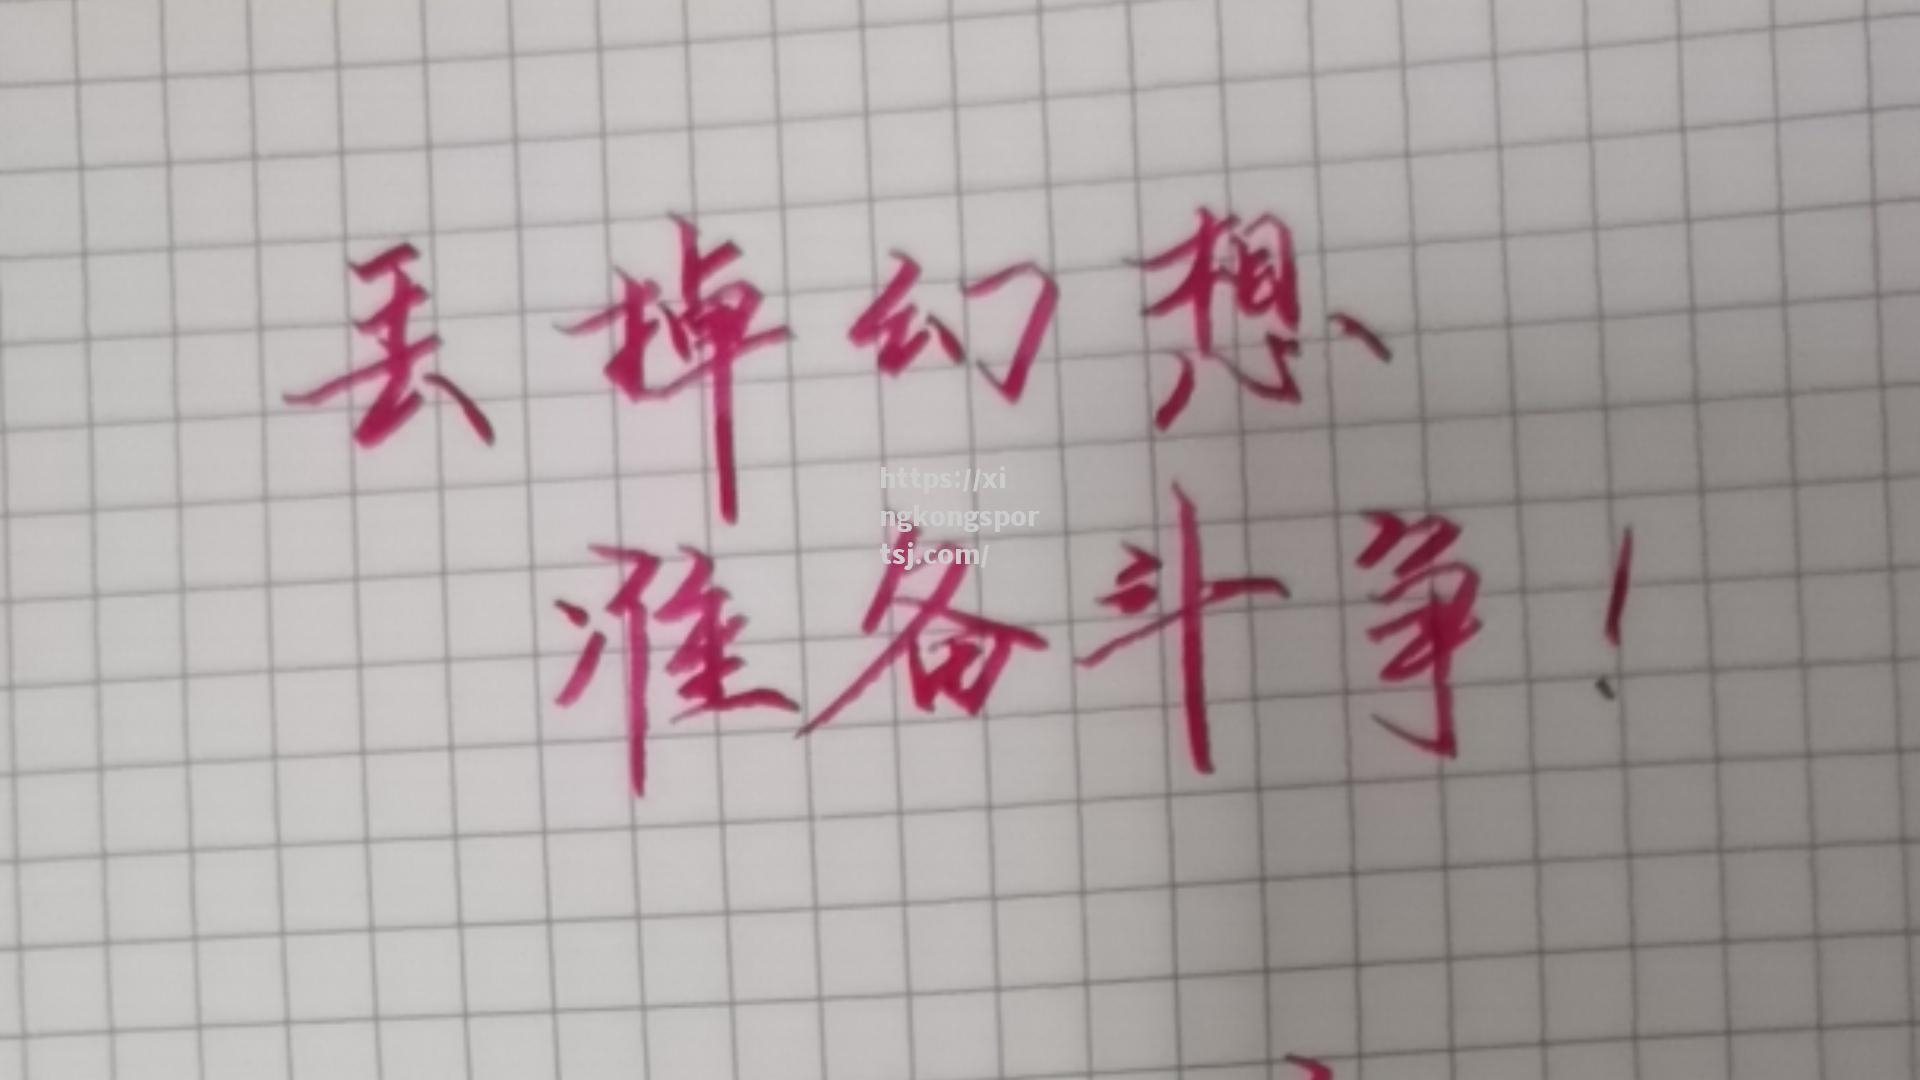 丢掉幻想
https://xi
ngkongspor
tsj.com/
准备斗争!